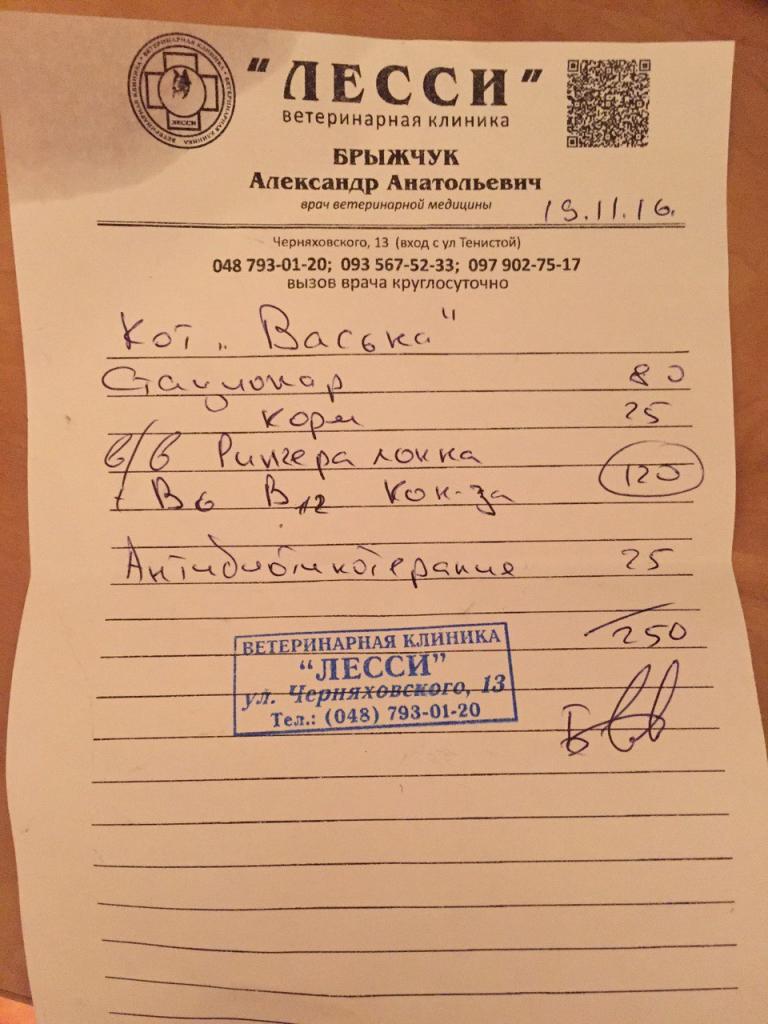 "ЛЕССИ"
ветеринарная клиника
БРЫЖЧУК
Александр Анатольевич
врач ветеринарной медицины
19.11.16.
Черняховского, 13 (вход с ул Тенистой)
048 793-01-20; 093 567-52-33; 097 902-75-17
вызов врача круглосуточно
Кот „Васька"
Стационар 80
корм 25
в/в Рингера локка 120
+ В6 В12 Кок-за
Антибиотикотерапия 25
250
ВЕТЕРИНАРНАЯ КЛИНИКА
"ЛЕССИ"
ул. Черняховского, 13
Тел.: (048) 793-01-20